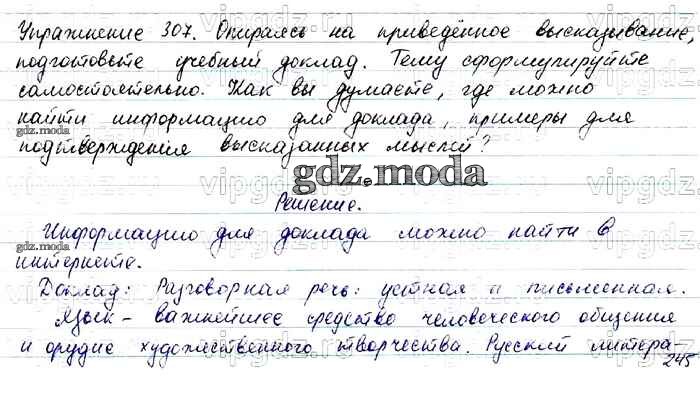 Упражнение 307. Опираясь на приведённое высказывание,
подготовьте учебный доклад. Тему сформулируйте
самостоятельно. Как вы думаете, где можно
найти информацию для доклада, примеры для
подтверждения высказанных мыслей?
gdz.moda
Решение.
Информацию для доклада можно найти в
интернете.
Доклад: Разговорная речь: устная и письменная.
Язык - важнейшее средство человеческого общения
и орудие художественного творчества. Русский литера-
245